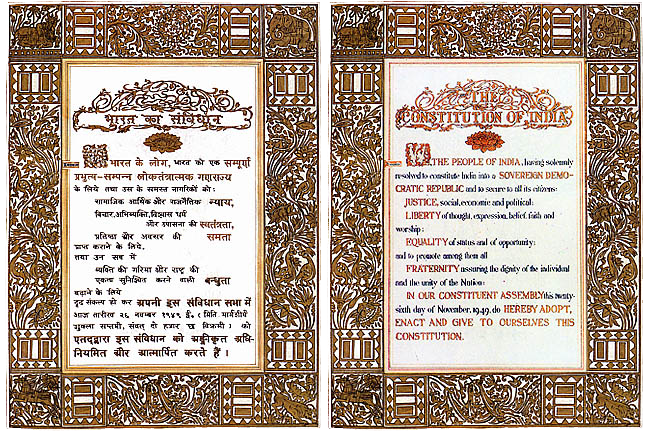 भारत का संविधान
हम भारत के लोग, भारत को एक सम्पूर्ण
प्रभुत्व-सम्पन्न लोकतंत्रात्मक गणराज्य
के लिये तथा उस के समस्त नागरिकों को:
सामाजिक आर्थिक और राजनैतिक न्याय,
विचार, अभिव्यक्ति, विश्वास धर्म
और उपासना की स्वतंत्रता,
प्रतिष्ठा और अवसर की समता
प्राप्त कराने के लिये,
तथा उन सब में
व्यक्ति की गरिमा और राष्ट्र की
एकता सुनिश्चित करने वाली बन्धुता
बढ़ाने के लिये
दृढ़ संकल्प हो कर अपनी इस संविधान सभा में
आज तारीख २६ नवम्बर १९४९ ई॰ (मिति मार्गशीर्ष
शुक्ला सप्तमी, संवत् दो हजार छ विक्रमी) को
एतद्द्वारा इस संविधान को अङ्गीकृत अधि-
नियमित और आत्मार्पित करते हैं।
THE
CONSTITUTION OF INDIA
WE, THE PEOPLE OF INDIA, having solemnly
resolved to constitute India into a SOVEREIGN DEMO-
CRATIC REPUBLIC and to secure to all its citizens:
JUSTICE, social, economic and political;
LIBERTY of thought, expression, belief, faith and
worship;
EQUALITY of status and of opportunity;
and to promote among them all
FRATERNITY assuring the dignity of the individual
and the unity of the Nation;
IN OUR CONSTITUENT ASSEMBLY this twenty-
sixth day of November, 1949, do HEREBY ADOPT,
ENACT AND GIVE TO OURSELVES THIS
CONSTITUTION.